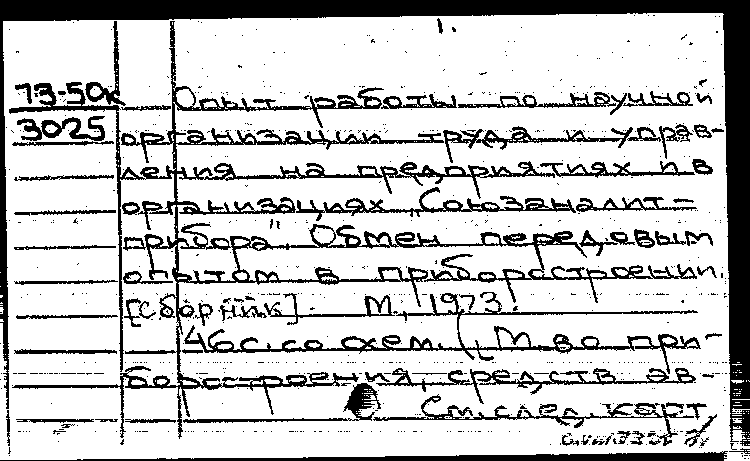 1.
73-50к Опыт работы по научной
3025 организации труда и управ-
ления на предприятиях и в
организациях „Союзаналит-
прибора". Обмен передовым
опытом в приборостроении.
[Сборник]. М., 1973.
46с. со схем. (М-во при-
боростроения, средств ав-
См. след. карт.